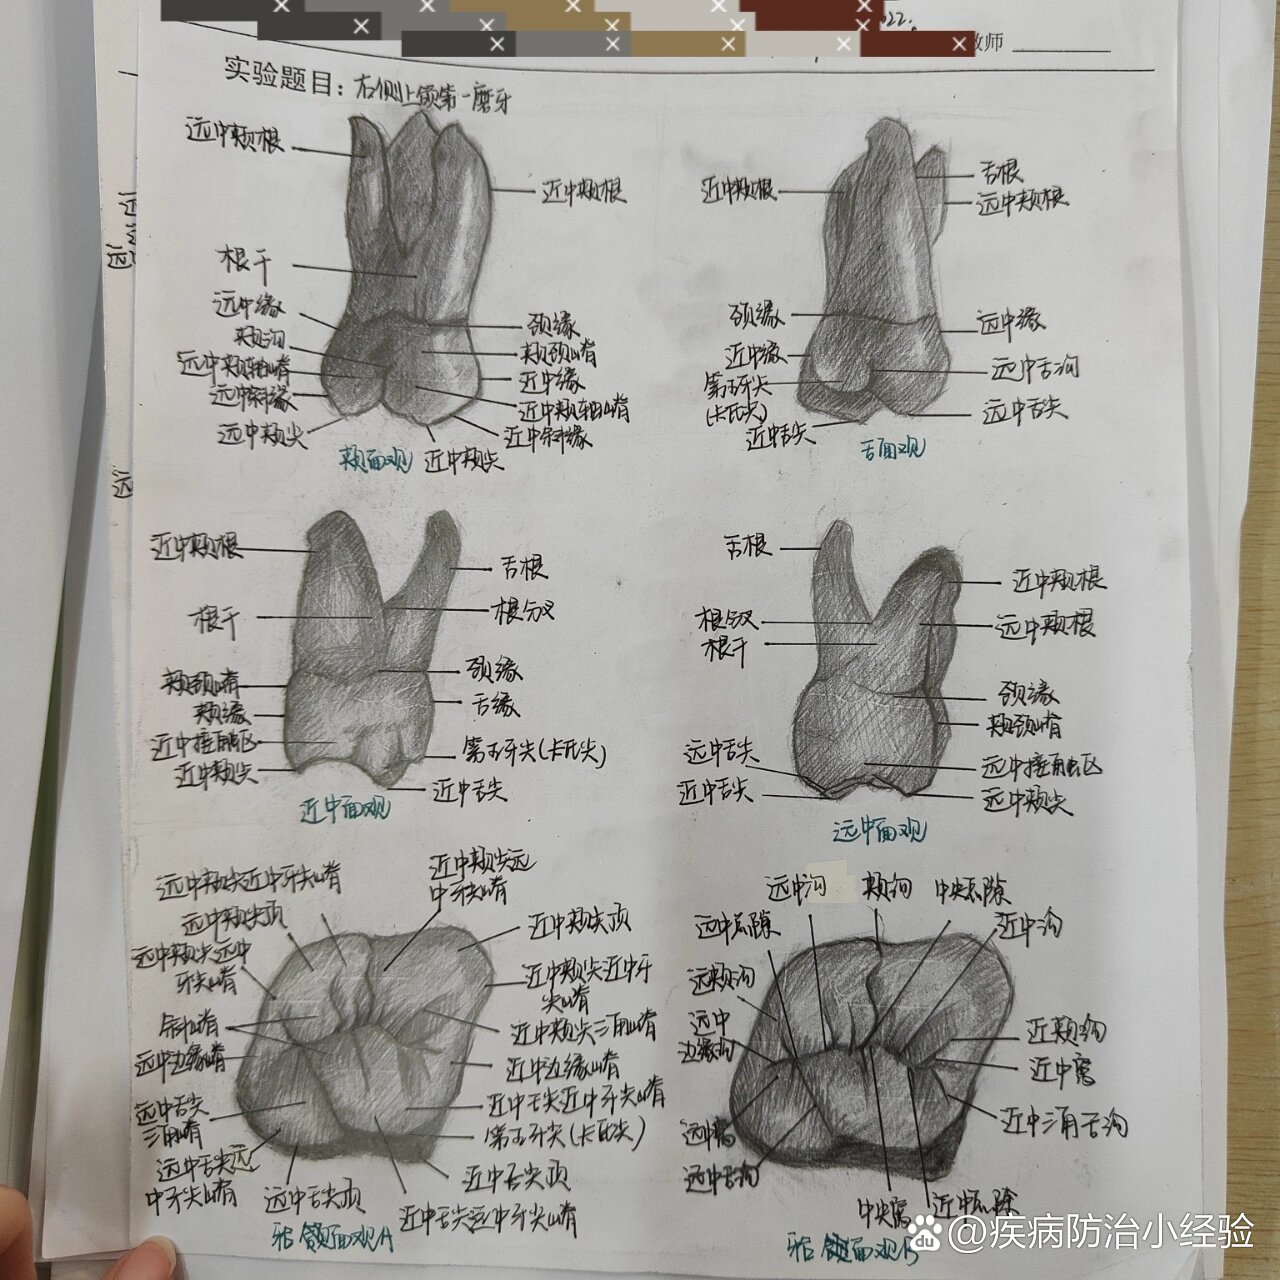 022.
教师
实验题目：右侧上颌第一磨牙
远中颊根
近中颊根
根干
远中缘
颊沟
远中颊轴嵴
远中斜缘
远中颊尖
颈缘
颊颈嵴
近中缘
近中颊轴嵴
近中斜缘
近中颊尖
颊面观
近中颊根
舌根
远中颊根
颈缘
近中缘
第五牙尖
(卡氏尖)
近中舌尖
远中缘
远中舌沟
远中舌尖
舌面观
近中颊根
根干
颊颈嵴
颊缘
近中接触区
近中颊尖
舌根
根分叉
颈缘
舌缘
第五牙尖(卡氏尖)
近中舌尖
近中面观
舌根
根分叉
根干
远中舌尖
近中舌尖
近中颊根
远中颊根
颈缘
颊颈嵴
远中接触区
远中颊尖
远中面观
远中颊尖近中牙尖嵴
远中颊尖顶
远中颊尖远中
牙尖嵴
斜嵴
远中边缘嵴
远中舌尖
三角嵴
远中舌尖远
中牙尖嵴
远中舌尖顶
近中颊尖远
中牙尖嵴
近中颊尖顶
近中颊尖近中牙
尖嵴
近中颊尖三角嵴
近中边缘嵴
近中舌尖近中牙尖嵴
第五牙尖(卡氏尖)
近中舌尖顶
近中舌尖远中牙尖嵴
𬌗面观A
远中沟
颊沟
中央点隙
近中沟
远中点隙
远颊沟
远中
边缘沟
远中窝
远中舌沟
近颊沟
近中窝
近中三角舌沟
中央窝
近中点隙
𬌗面观B
Bai du @疾病防治小经验